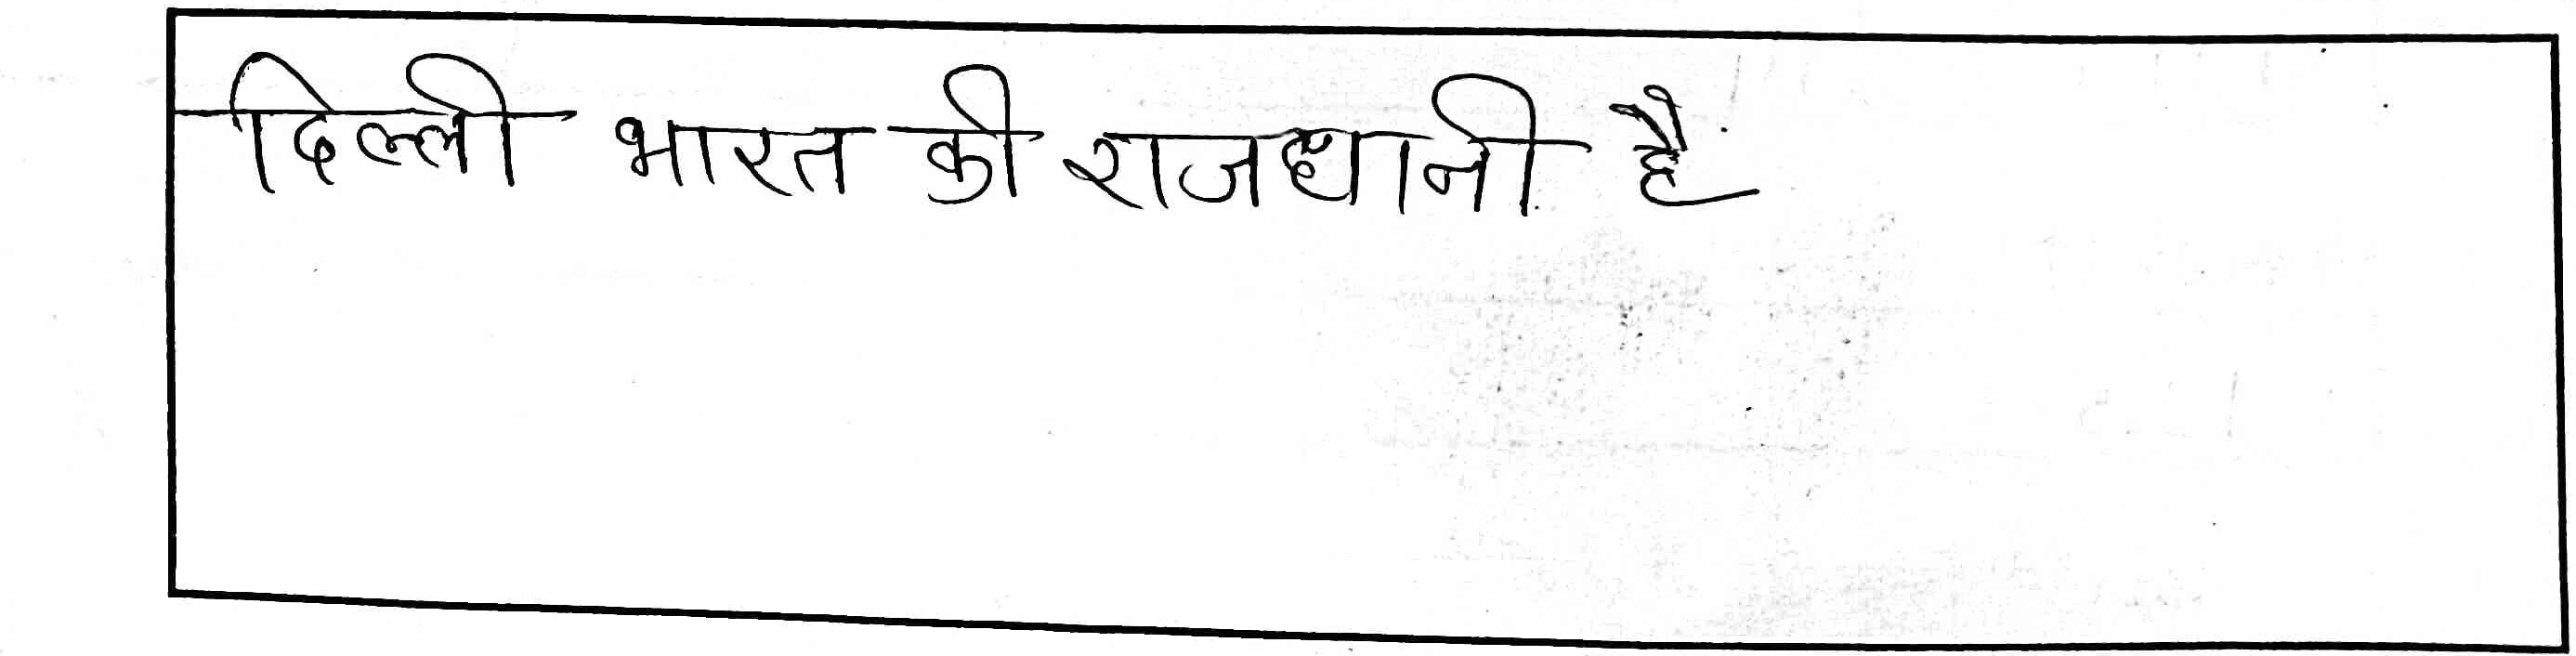 दिल्ली भारत की राजधानी है